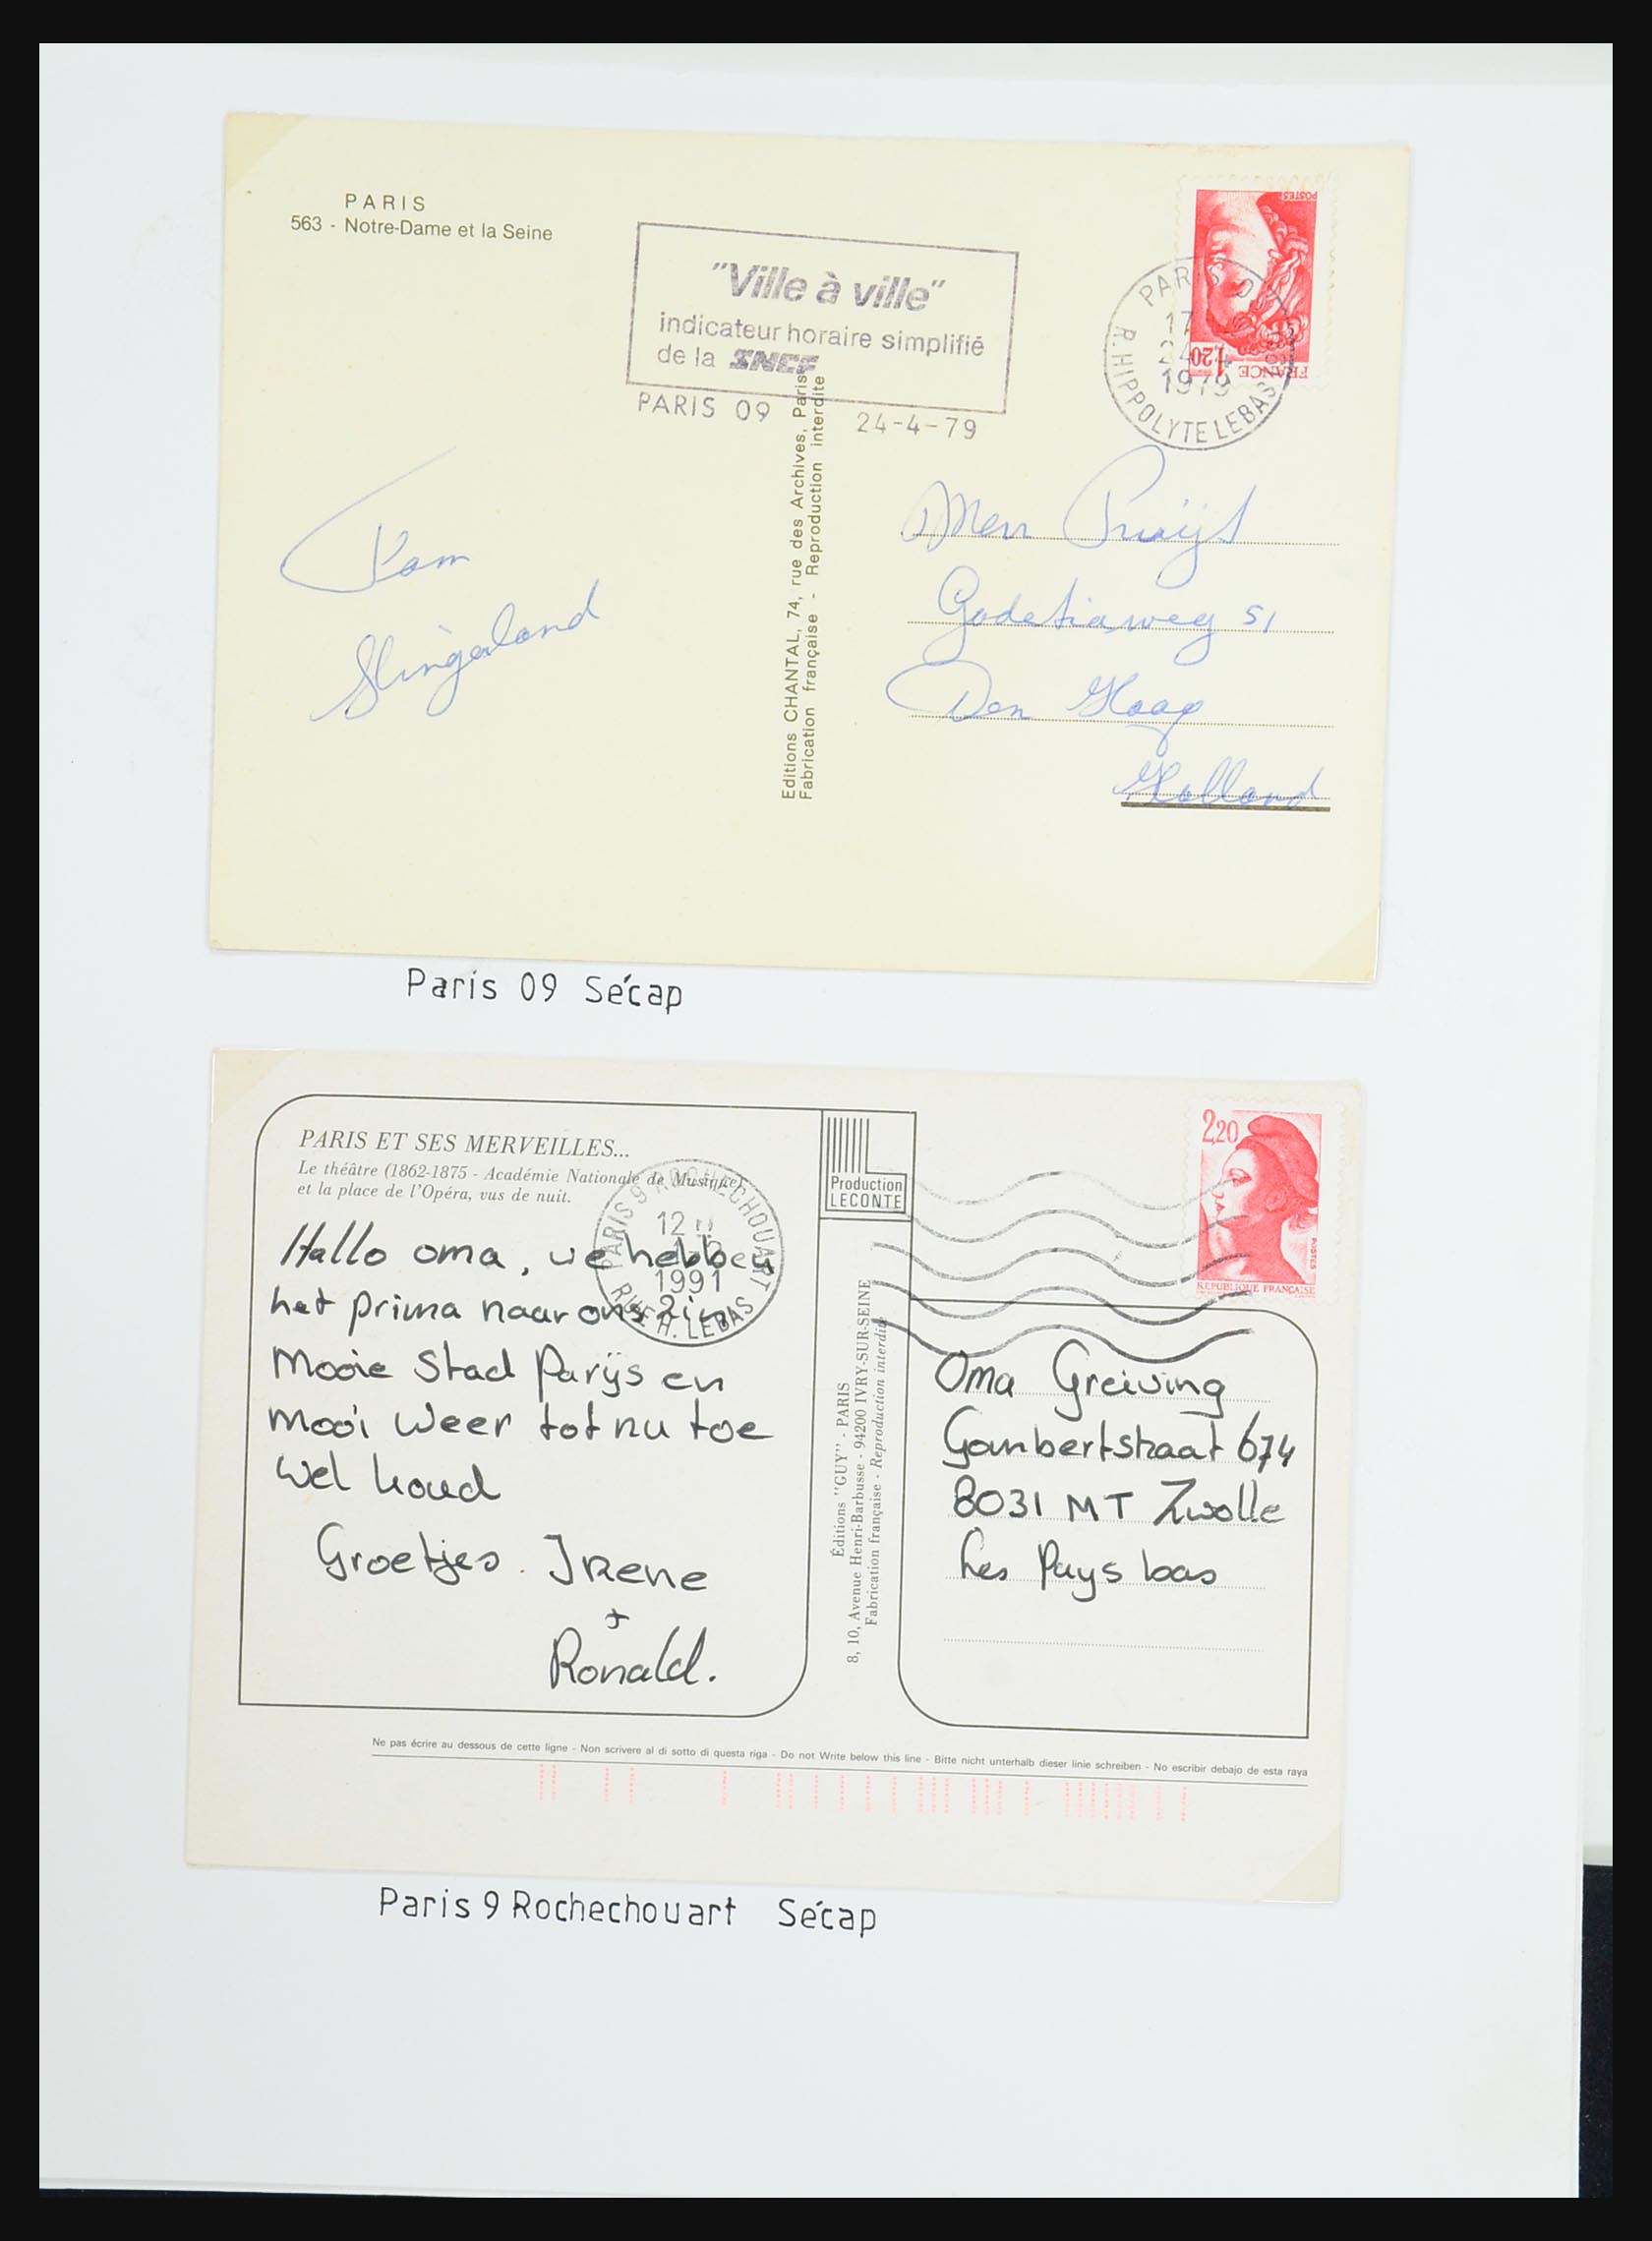 PARIS
563 - Notre-Dame et la Seine
"Ville à ville"
indicateur horaire simplifié
de la SNCF
PARIS 09 24-4-79
PARIS 09
17
24-4
1979
R. HIPPOLYTE LEBAS
POSTES
1,20
FRANCE
Editions CHANTAL, 74, rue des Archives, Paris
Fabrication française - Reproduction interdite
Fam
Slingeland
Godetiaweg 51
Den Haag
Holland
Paris 09 Sécap
PARIS ET SES MERVEILLES...
Le théâtre (1862-1875 - Académie Nationale de Musique)
et la place de l'Opéra, vus de nuit.
PARIS 9 ROCHECHOUART
12
1991
RUE H. LEBAS
Production
LECONTE
2,20
POSTES
REPUBLIQUE FRANÇAISE
Hallo oma, we hebben
het prima naar ons zin,
Mooie Stad Parijs en
mooi weer tot nu toe
wel koud
Groetjes. Irene
+
Ronald.
Éditions "GUY" - PARIS
8, 10, Avenue Henri-Barbusse - 94200 IVRY-SUR-SEINE
Fabrication française - Reproduction interdite
Oma Greiving
Gombertstraat 674
8031 MT Zwolle
Les Pays bas
Ne pas écrire au dessous de cette ligne - Non scrivere al di sotto di questa riga - Do not Write below this line - Bitte nicht unterhalb dieser linie schreiben - No escribir debajo de esta raya
Paris 9 Rochechouart Sécap